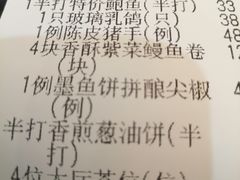 1半打特价鲍鱼(半打) 33
1只玻璃乳鸽(只) 38
1例陈皮猪手(例)
4块香酥紫菜鳗鱼卷 12
(块)
1例墨鱼饼拼酿尖椒
(例)
半打香煎葱油饼(半
打)
4位